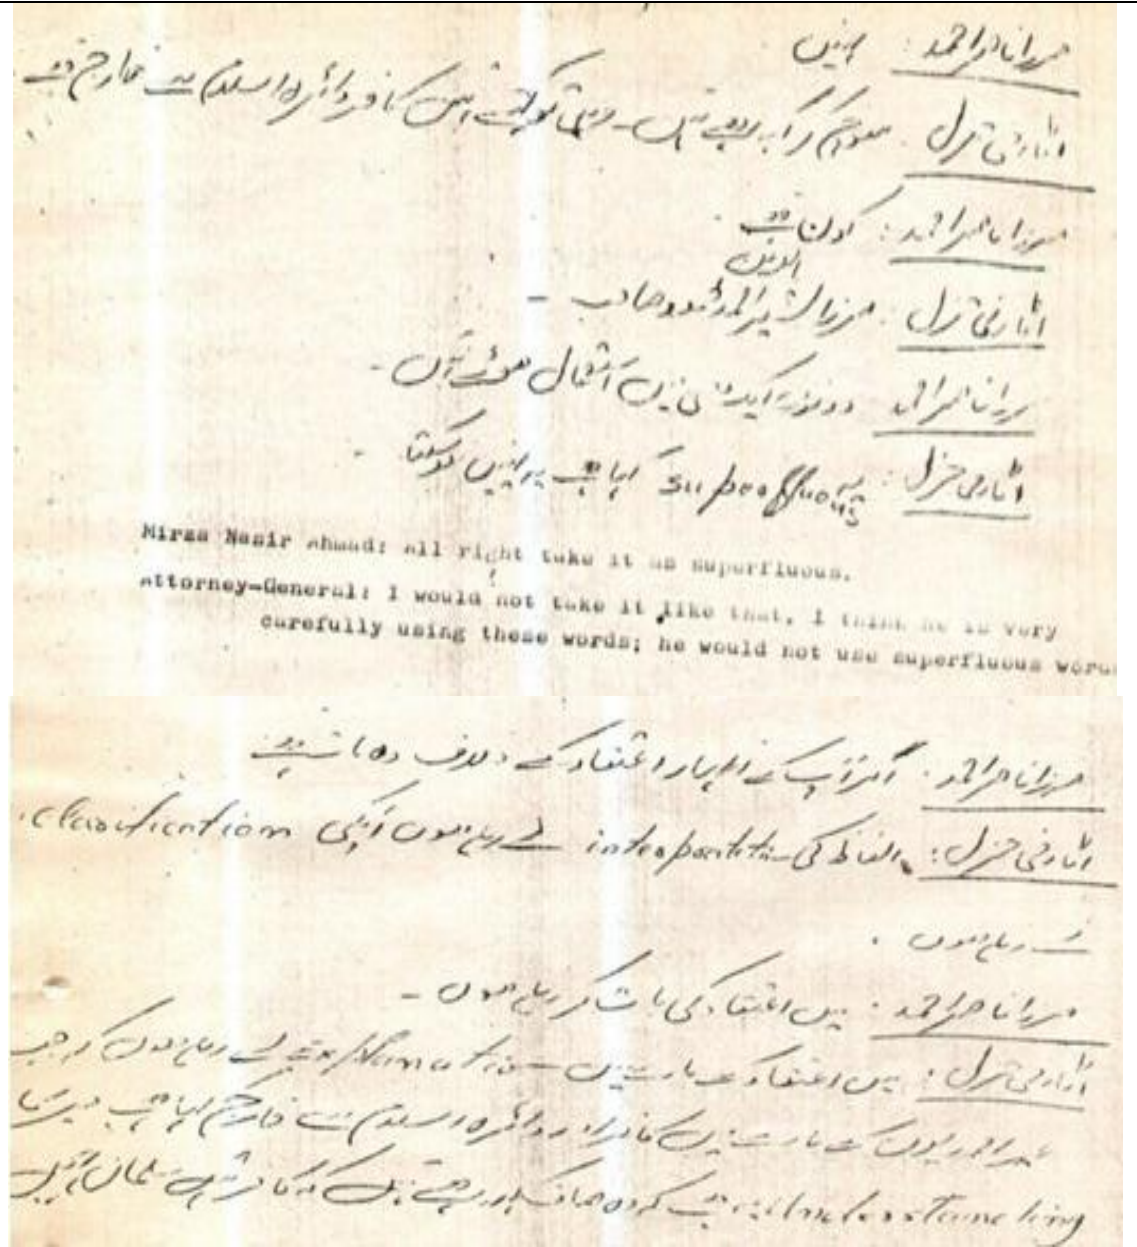 مرزا ناصر احمد: نہیں
اٹارنی جنرل: معلوم کر رہے ہیں۔ کہتے ہیں کافر دائرہ اسلام سے خارج ہے
مرزا ناصر احمد: کون ہے
الدین
اٹارنی جنرل: مرزا بشیر محمود صاحب۔
مرزا ناصر احمد دونوں ایک معنی میں استعمال ہوئے ہیں۔
اٹارنی جنرل: یہ superfluous کہا ہے
Mirza Nasir Ahmad: All right take it as superfluous.
Attorney-General: I would not take it like that. I think he is very
carefully using these words; he would not use superfluous words
مرزا ناصر احمد: اگر آپ کے اظہار اعتقاد کے خلاف وہ بات ہے
اٹارنی جنرل: الفاظ کی لے رہا ہوں آپکی clarification.
لے رہا ہوں۔
مرزا ناصر احمد: میں اعتقاد کی بات کر رہا ہوں۔
اٹارنی جنرل: میں اعتقاد کے بارے میں explanation لے رہا ہوں کہ جب
غیر احمدیوں کے بارے میں کافر اور دائرہ اسلام سے خارج کہا ہے
understanding یہ ہے کہ وہ صاف کہہ رہے ہیں کہ